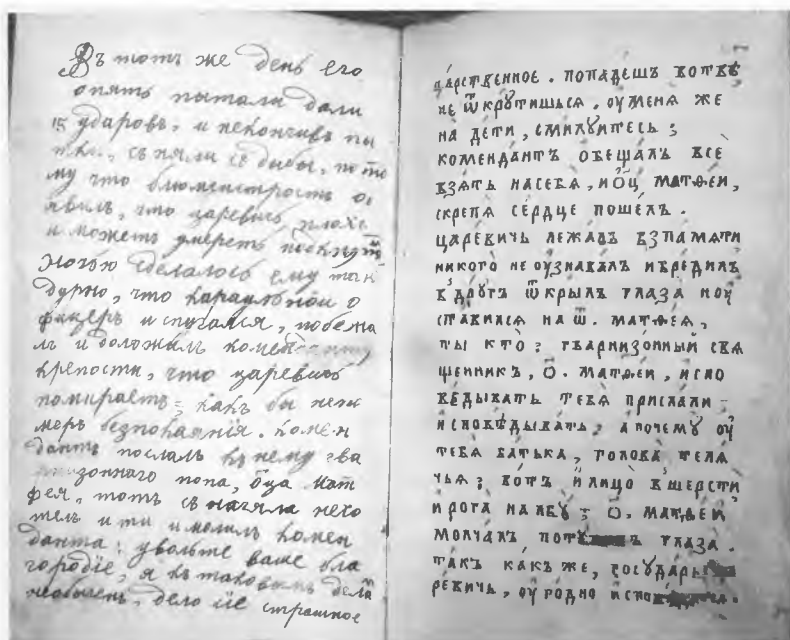 Въ тотъ же день его
опять пытали дали
15 ударовъ, и некончивъ пы
тки, съняли съ дыбы, пото
му что блюментростъ об
явилъ, что царевичь плохъ
и можетъ умереть подкнутомъ
Ночью сделалось ему такъ
дурно, что караульнои о
фицеръ испугался, побежа
лъ и доложилъ коменданту
крепости, что царевичь
помираетъ; какъ бы неза
меръ безпокаянія. комен
дантъ послалъ къ нему гва
рнизоннаго попа, оца мат
фея, тотъ съначяла нехо
телъ ити имолилъ комен
данта: увольте ваше бла
городіе, я къ таковымъ деламъ
необыченъ, дело сіе страшное
царственное. попадешъ вотвѣ
не ѿкрутишься. оуменя же
на дети, смилуитесь;
комендантъ обещалъ все
взять насебя, иоцъ матѳеи,
скрепя сердце пошелъ.
царевичь лежалъ взпамяти
никого не оузнавалъ ибредилъ
вдругъ ѿкрылъ глаза иоу
ставился на ѿ. матѳея,
ты кто; гварнизонныи свя
щенникъ, о. матѳеи, испо
вѣдывать тебя прислали -
исповѣдывать; апочему оу
тебя батька, голова теля
чья; вотъ илицо вшерсти
ирога налбу; о. матѳеи
молчалъ глаза.
такъ какъ же, государь
ревичь, оугодно